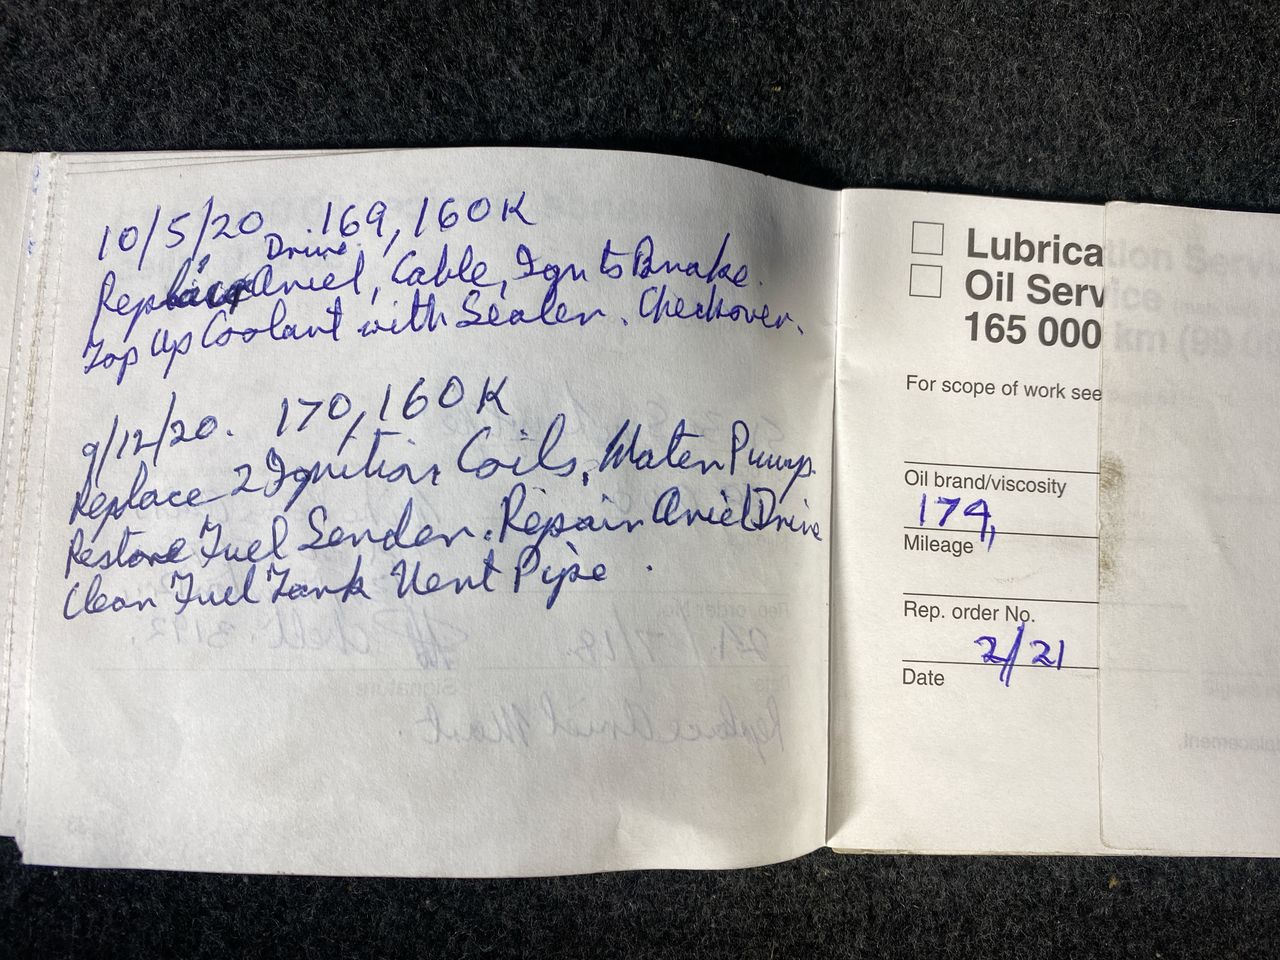 10/5/20 169,160K
Drive
Replace Ariel, Cable, Ign to Brake.
Top Up Coolant with Sealer. Checkover.
9/12/20. 170,160K
Replace 2 Ignition Coils, Water Pump.
Restore Fuel Sender. Repair Ariel Drive
Clean Fuel Tank Vent Pipe.
Lubrication Servi
Oil Service
165 000 km (99 00
For scope of work see
Oil brand/viscosity
174,
Mileage
Rep. order No.
2/21
Date